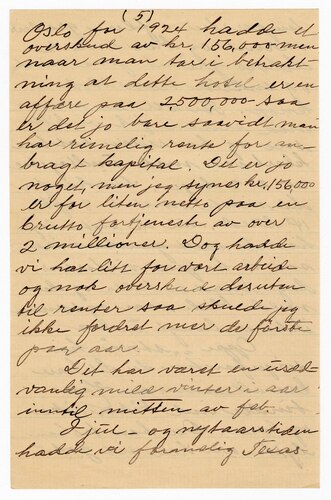 (5)
Oslo for 1924 hadde et
overskud av kr. 156,000 men
naar man tar i betrakt-
ning at dette hotel er en
affære paa 2,500,000 saa
er det jo bare saavidt man
har rimelig rente for an-
bragt kapital. Det er jo
noget, men jeg synes kr. 156,000
er for liten netto paa en
brutto fortjeneste av over
2 millioner. Dog hadde
vi hat litt for vort arbeide
og nok overskud deruten
til renter saa skulde jeg
ikke fordret mer de første
par aar.
Det har været en usæd-
vanlig mild vinter i aar
inntil mitten av feb.
I jul- og nytaarstiden
hadde vi formelig Texas